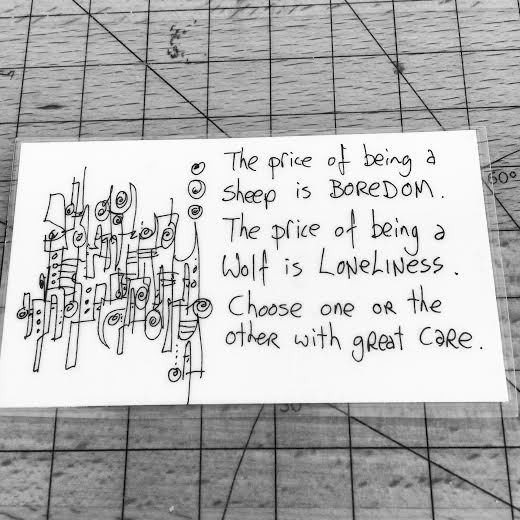 The price of being a
sheep is BOREDOM.
The price of being a
Wolf is LONELINESS.
Choose one OR the
other with great Care.
60°
30